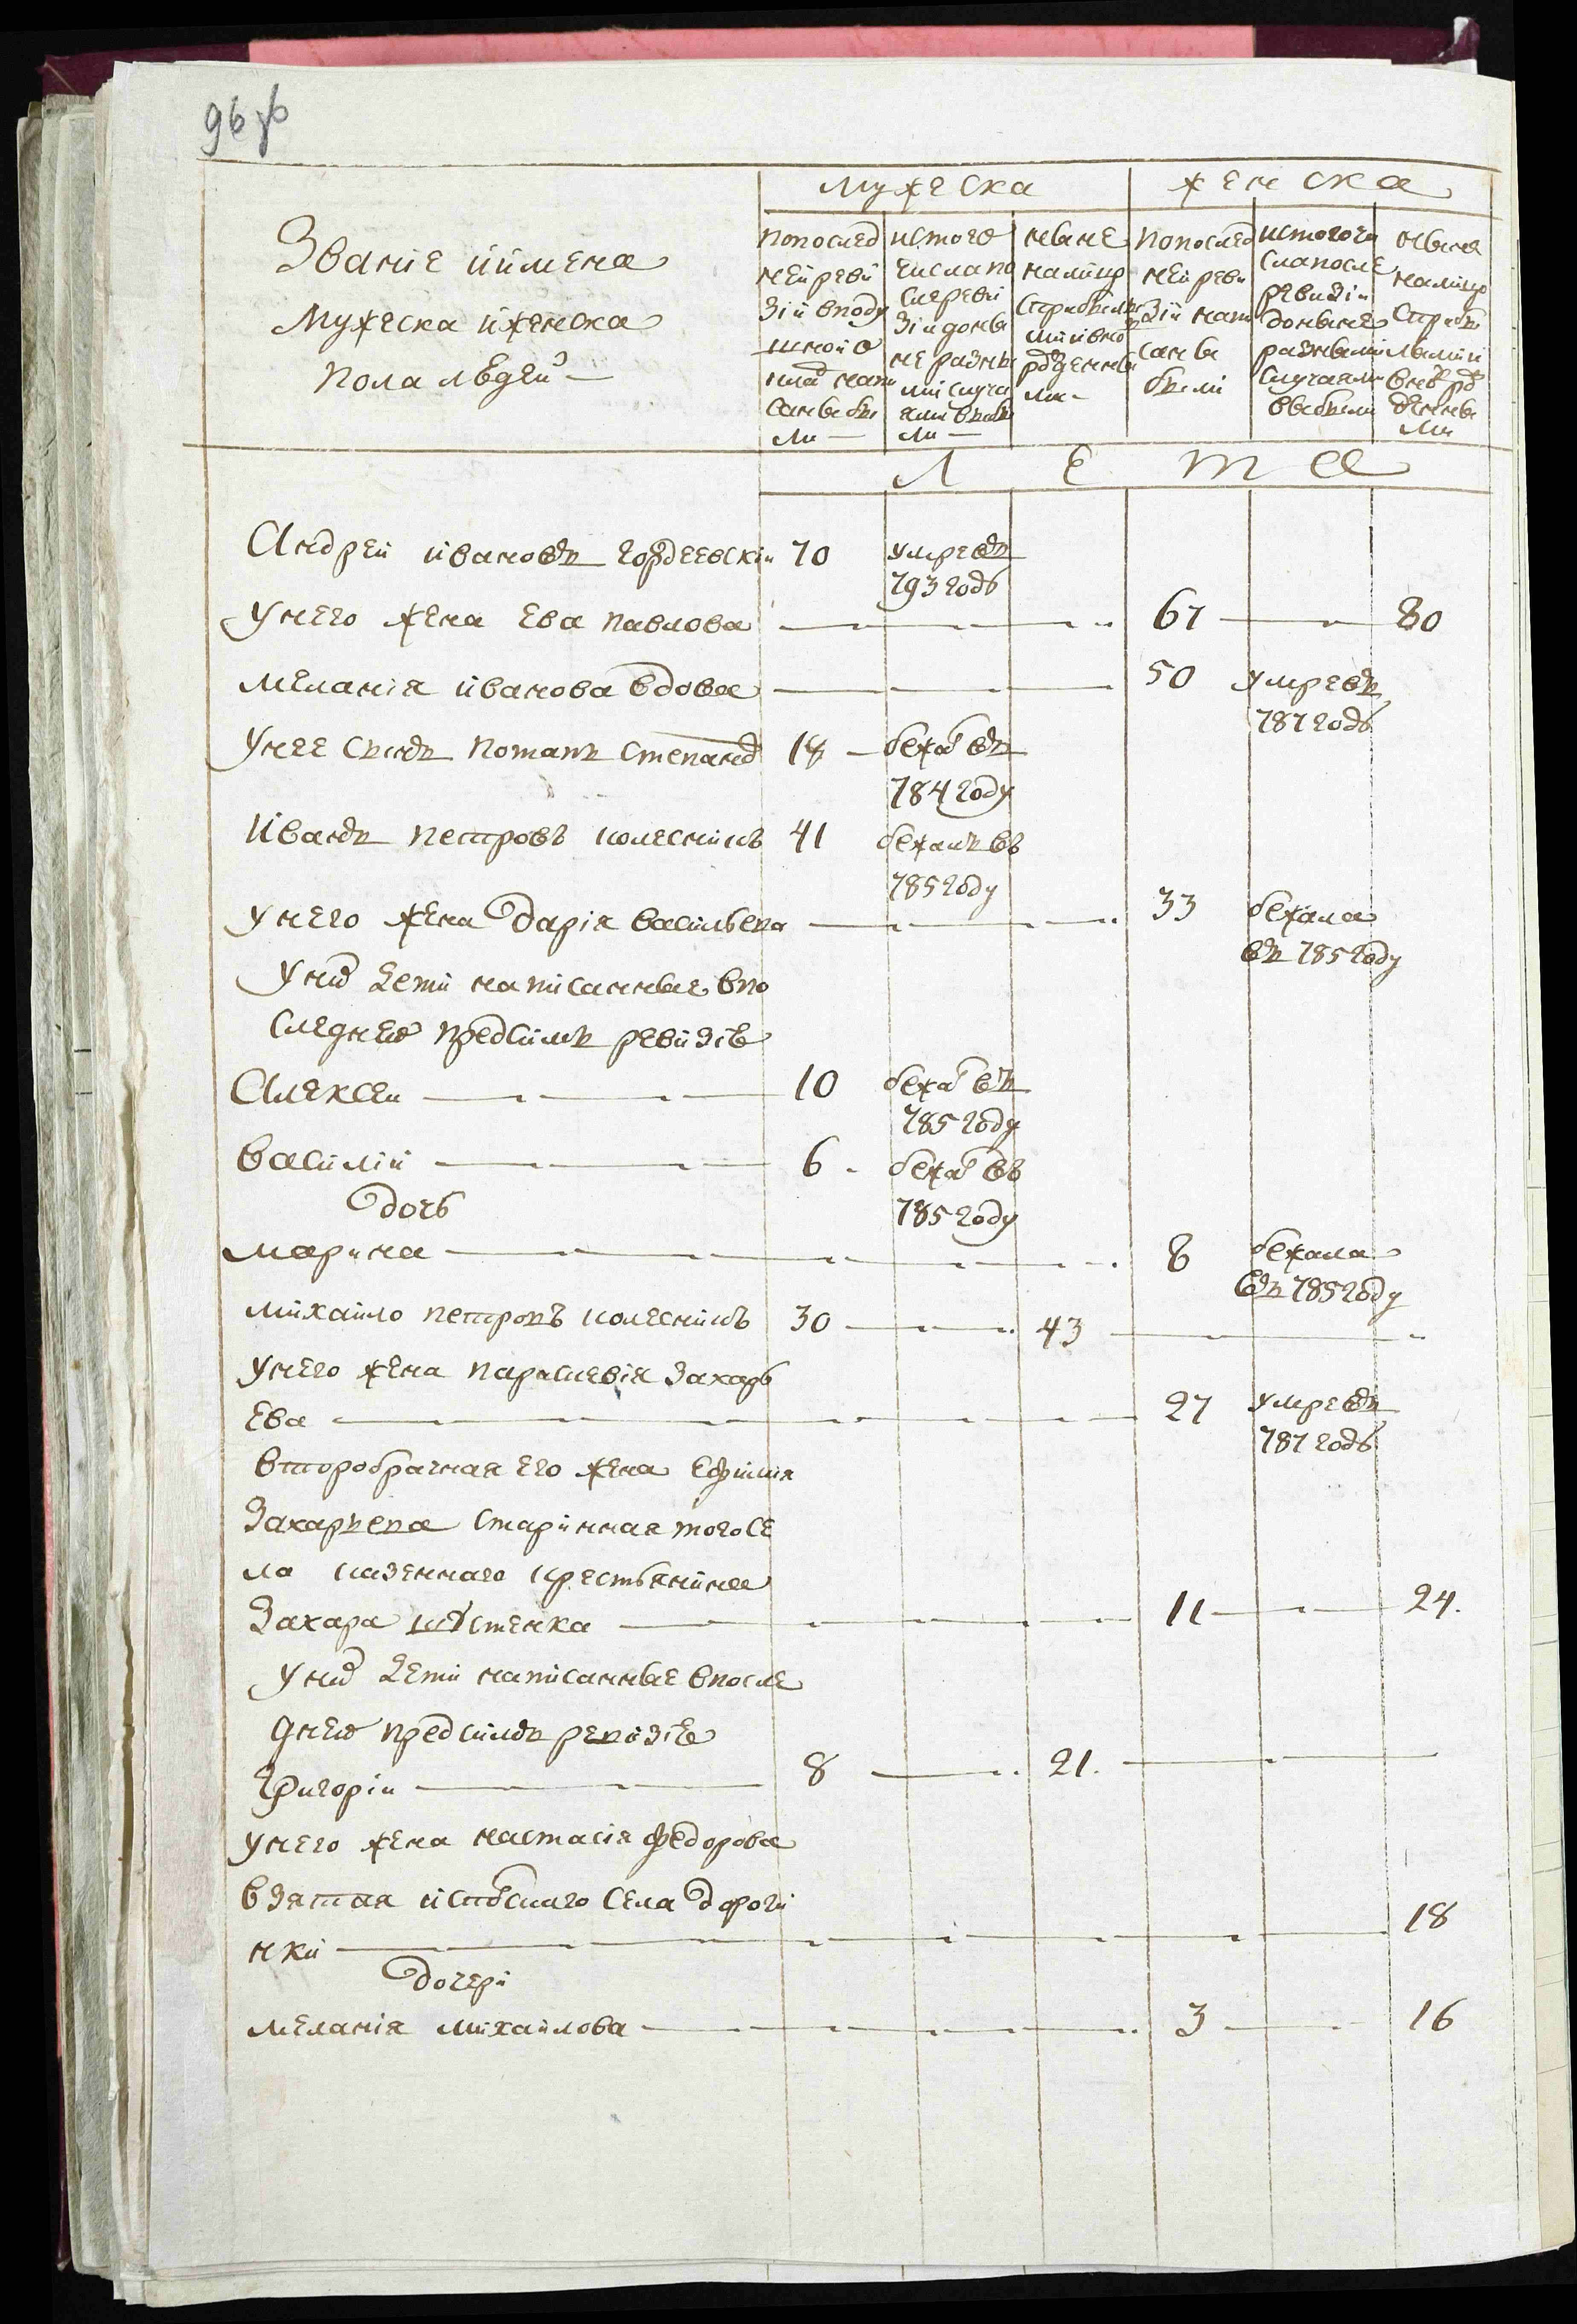 96 зв
мужеска женска
Званіе и имена
Мужеска и женска
пола людей
по послед
ней реви
зіи в поду
шной о
клад напи
саны бы
ли
ис того
числа по
сле реви
зіи доны
не разны
ми случа
ями выбы
ли
ныне
на лицо
с прибылы
ми и вно
в рожденны
ми
по послед
ней реви
зіи напи
саны
были
ис того чи
сла после
ревизіи
доныне
разными
случаями
выбыли
ныне
на лицо
с прибы
лыми и
вновь ро
жденны
ми
Л е т а
Андрей ивановъ гордеевскій 70 умре въ
793 годѣ
У него жена Ева павлова 67 80
меланія иванова вдова 50 умре въ
787 годѣ
У нее сынъ потапъ степанов 18 бежал въ
784 году
Иванъ петровъ колесникъ 41 бежалъ въ
785 году
У него жена дарія васильева 33 бежала
въ 785 году
У них дети написанные в по
следней пред симъ ревизіе
Алексей 10 бежал въ
785 году
василій 6 бежал въ
785 году
дочь
марина 8 бежала
въ 785 году
михайло петровъ колесникъ 30 43
У него жена параскевія захарь
ева 27 умре въ
787 годѣ
второбрачная его жена ефимія
Захарьева старинная того се
ла казеннаго крестьянина
Захара шостенка 11 24.
У них дети написанные в после
дней пред симъ ревизіе
Григорій 8 21.
У него жена настасія федорова
взятая из селa дороги
нки 18
дочери
меланія михайлова 3 16